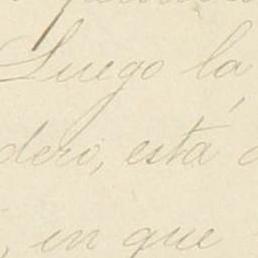 Luego la
dero, está
en que